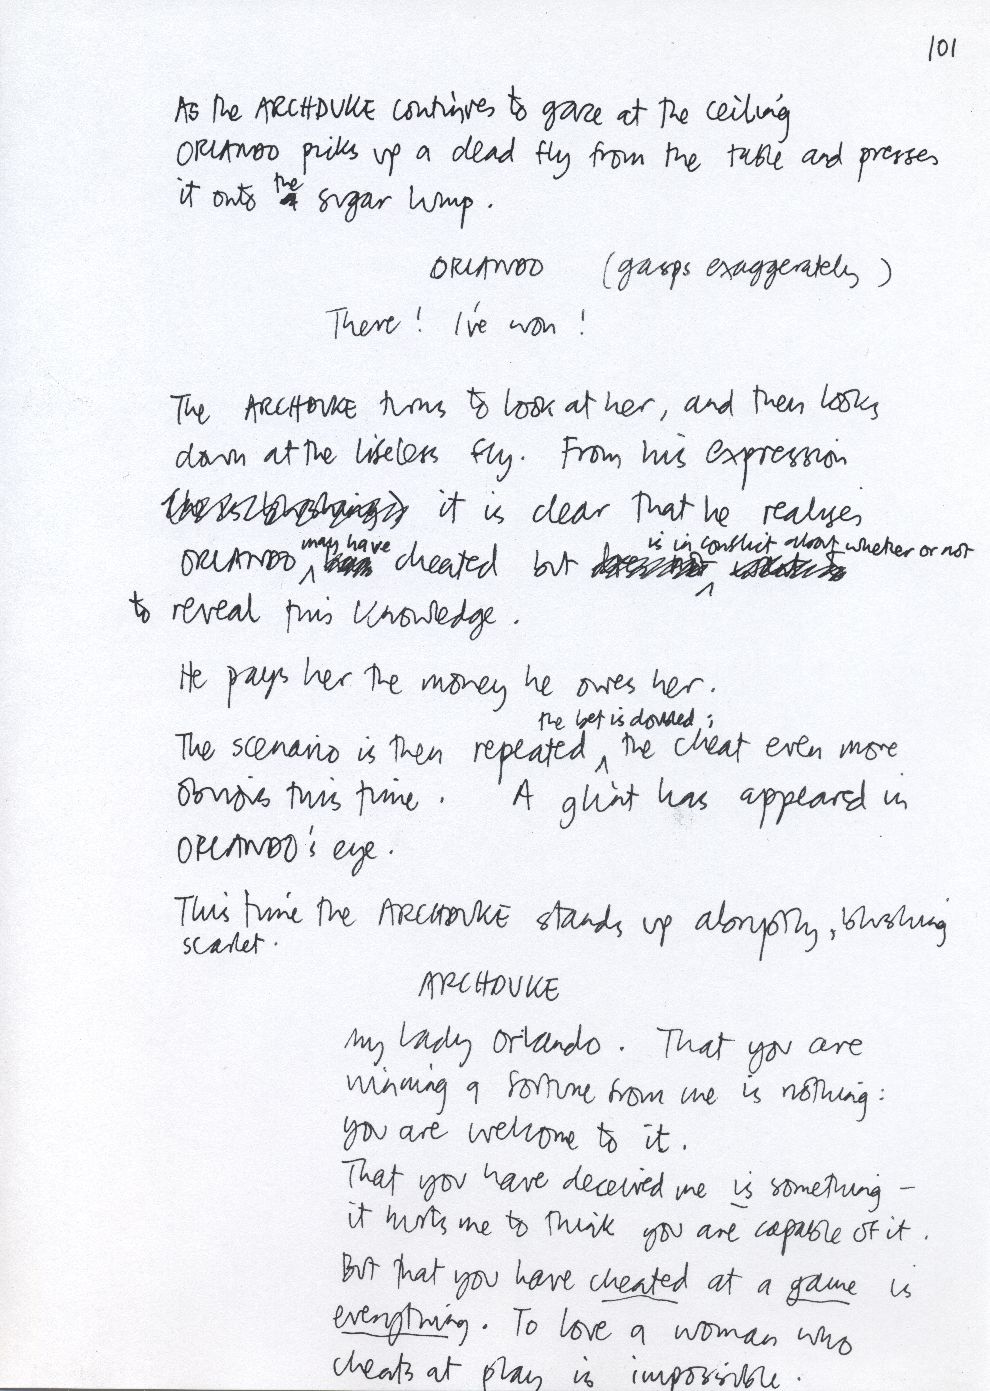 101
As the ARCHDUKE continues to gaze at the ceiling
ORLANDO picks up a dead fly from the table and presses
it onto the sugar lump.
ORLANDO (gasps exaggerately)
There! I've won!
The ARCHDUKE turns to look at her, and then looks
down at the lifeless fly. From his expression
it is clear that he realises
ORLANDO may have cheated but is in conflict about whether or not
to reveal this knowledge.
He pays her the money he owes her.
the bet is doubled;
The scenario is then repeated the cheat even more
obvious this time. A glint has appeared in
ORLANDO's eye.
This time the ARCHDUKE stands up abruptly, blushing
scarlet.
ARCHDUKE
My Lady Orlando. That you are
winning a fortune from me is nothing:
you are welcome to it.
That you have deceived me is something –
it hurts me to think you are capable of it.
But that you have cheated at a game is
everything. To love a woman who
cheats at play is impossible.